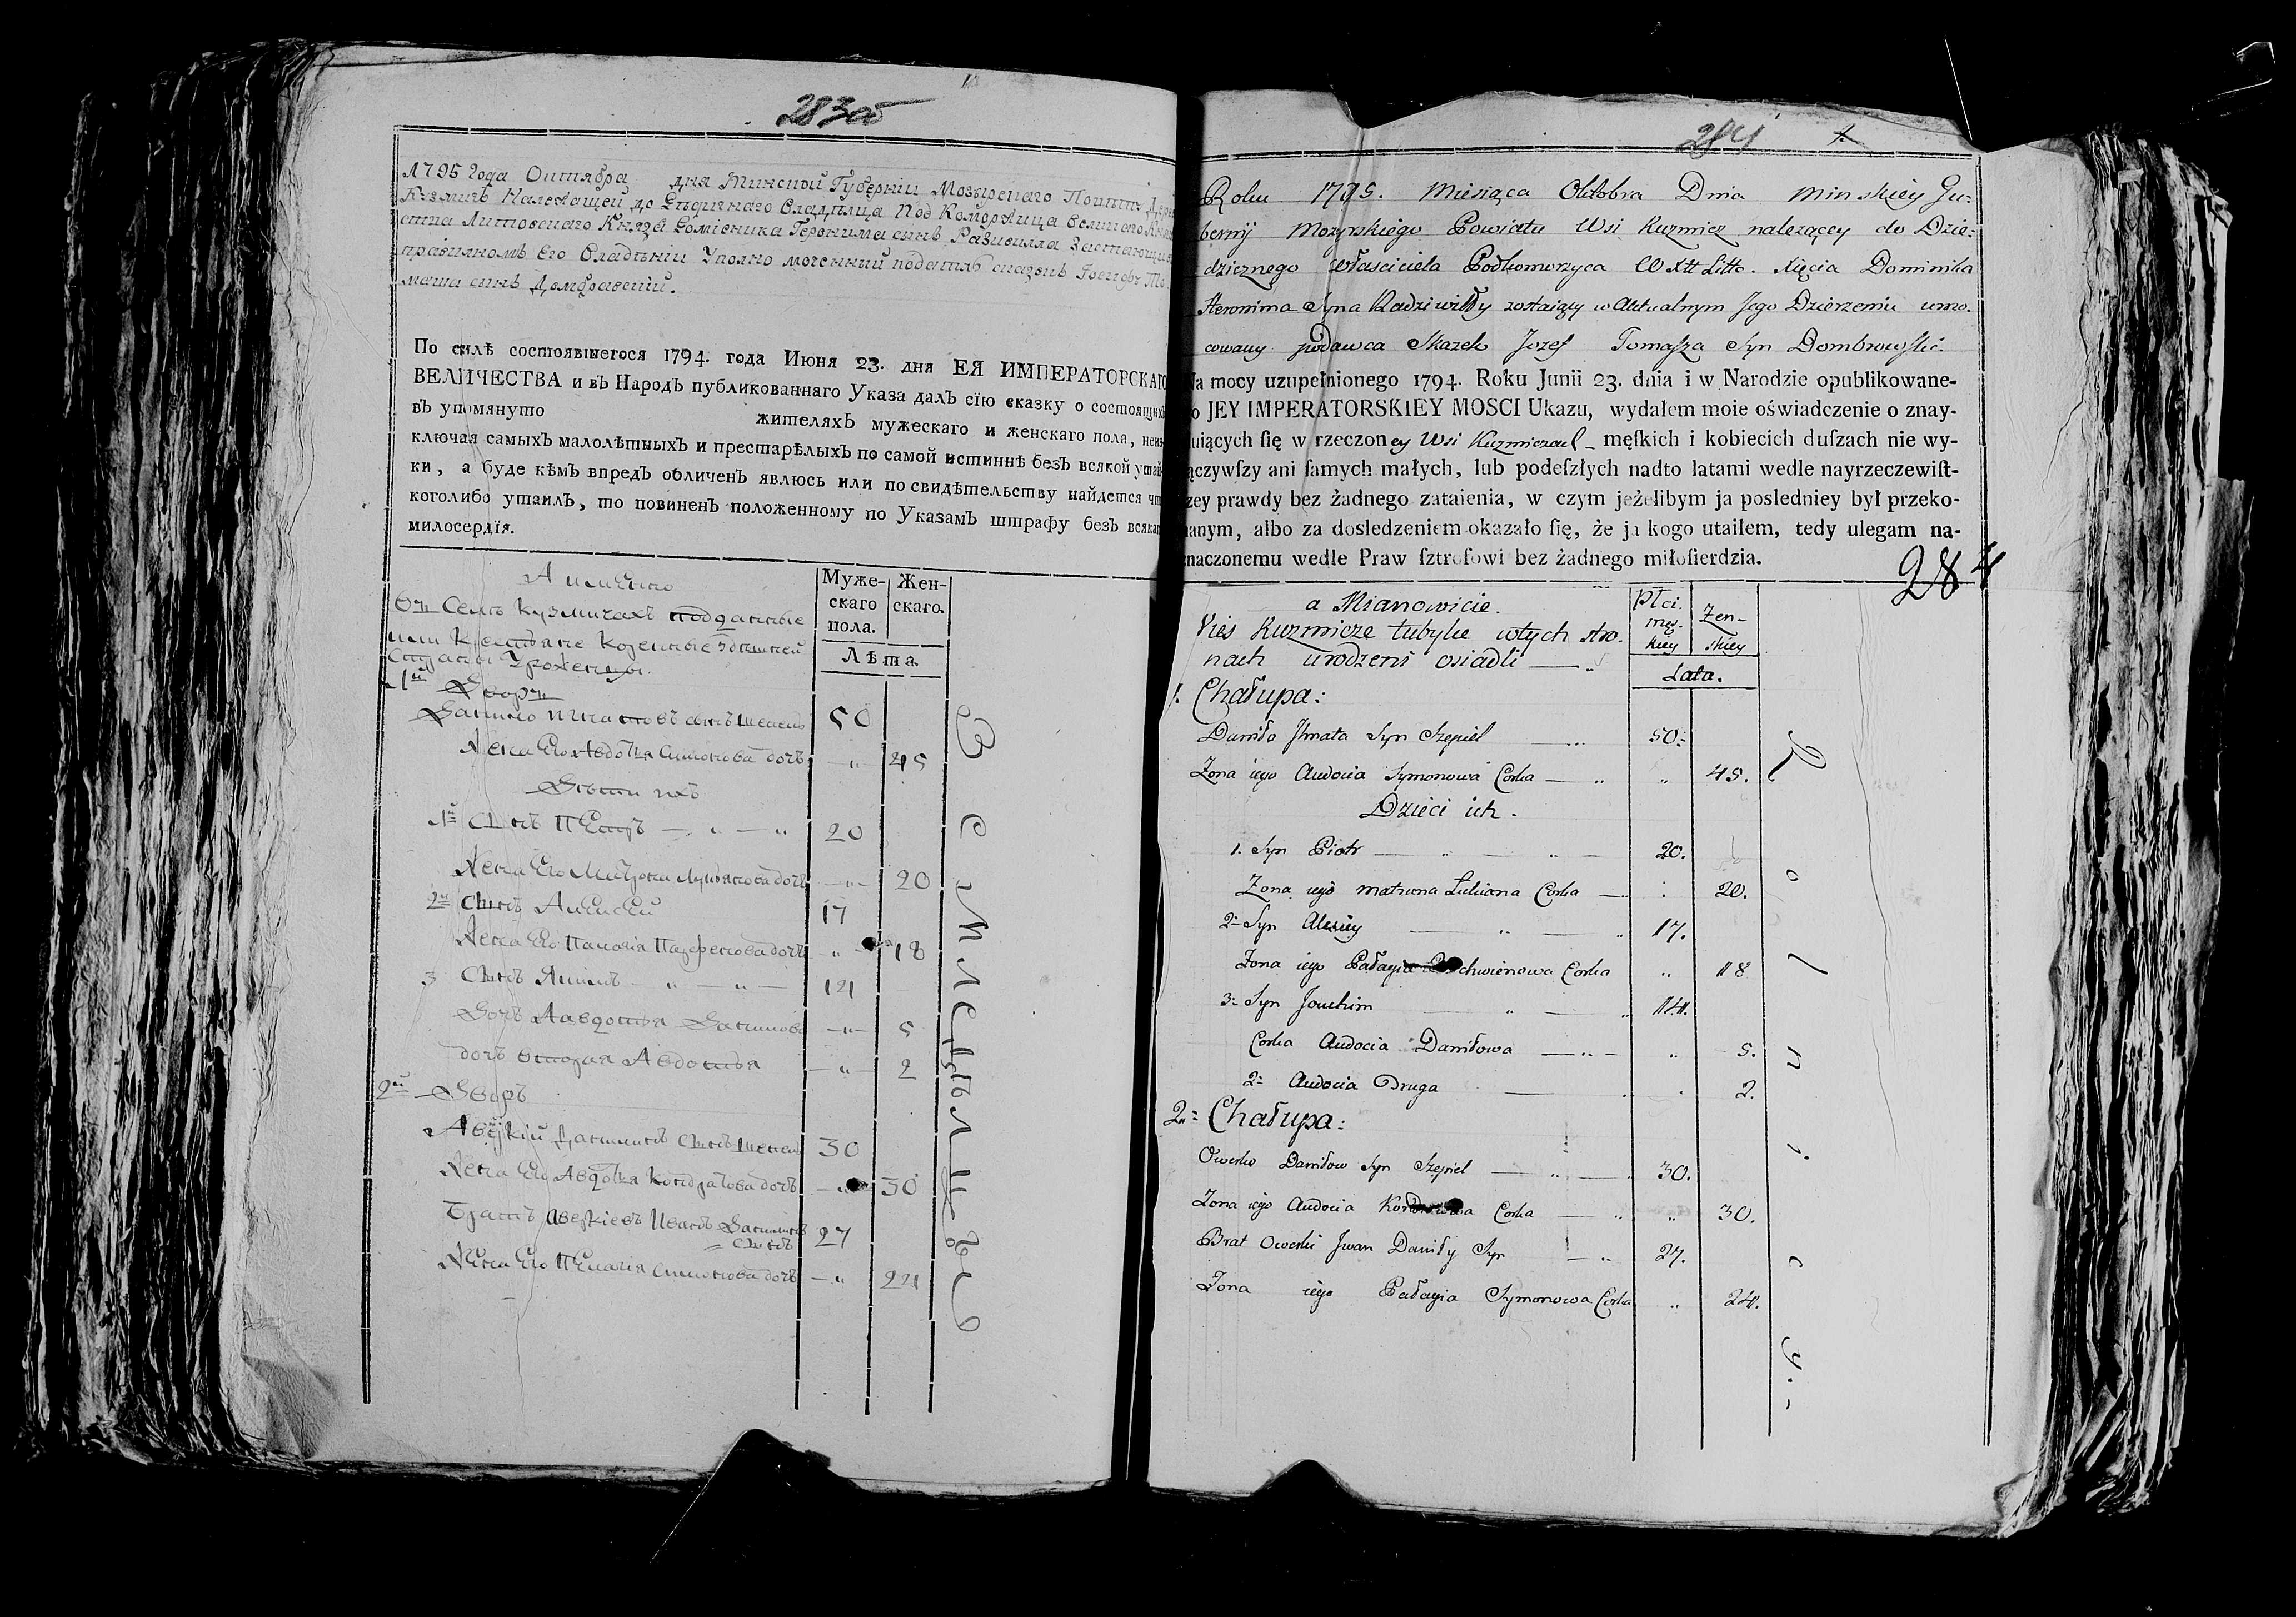 283об
1795 Года Октября дня Минской Губернии Мозырскаго Повѣту Дерев
Кузмичъ Належащей до Владѣлца Под Коморжица Великаго Княж
ства Литовскаго Князя Доминика Геронима сынъ Радзивилла
правилномъ Его Владѣнии Уполно моченный сказокъ То
маша сынъ Домбравский.
По силѣ состоявшегося 1794. года Июня 23. дня ЕЯ ИМПЕРАТОРСКАГО
ВЕЛИЧЕСТВА и въ Народъ публикованнаго Указа далъ сїю сказку о состоящихъ
въ упомянуто жителяхъ мужескаго и женскаго пола, неис
ключая самыхъ малолѣтныхъ и престарѣлыхъ по самой истиннѣ безъ всякой утай
ки, а буде кѣмъ впредъ обличенъ явлюсь или по свидѣтельству найдется что
коголибо утаилъ, то повиненъ положенному по Указамъ штрафу безъ всякаго
милосердїя.
А имѣнно
Въ Селѣ Кузмичахъ подданные
или Крестьяне
Уроженцы.
Муже-
скаго
пола.
Жен-
скаго.
Лѣта
1й Дворъ
Данило Игнатовъ сынъ 50
Жена Его Авдотья Симонова дочь —„— 45
Дѣти ихъ
1й Сынъ Пётръ — „ — „ 20
Жена Его Лукьянова дочь —„— 20
2й Сынъ Алексей 17
Жена Его Палагія Парфенова дочь „ 18
3 Сынъ Якимъ — „ — „ — 14
Дочь Авдотья Данилова —„— 5
дочь вторая Авдотья —„— 2
2й Дворъ
Аверкій Данилов Сынъ 30
Жена Его Авдотья Кондратова дочь —„ 30
Братъ Аверкіевъ Иванъ Данилов
Сынъ 27
Жена Его Пелагія Симонова дочь —„ 24
Земледѣлцы
284
Roku 1795. Miesiąca Oktobra Dnia Minskiey Gu-
bernij Mozyrskiego Powiatu Wsi Kuzmicz nalezącey do Dzie-
dzicznego Własciciela Podkomorzyca W X Litto. Xięcia Dominika
Heronima Syna Radziwiłły zostaiący w Aktualnym Jego Dzierzeniu umo.
cowany podawca Skazek Jozef Tomasza Syn Dombrowski.
Na mocy uzupełnionego 1794. Roku Junii 23. dnia i w Narodzie opublikowane-
go JEY IMPERATORSKIEY MOSCI Ukazu, wydałem moie oświadczenie o znay-
duiących ſię w rzeczoney Wsi Kuzmiczach męſkich i kobiecich duſzach nie wy-
łączywſzy ani ſamych małych, lub podeſzłych nadto latami wedle nayrzeczewiſt-
szey prawdy bez żadnego zataienia, w czym jeżelibym ja posledniey był przeko-
nanym, albo za dosledzeniem okazało ſię, że ja kogo utaiłem, tedy ulegam na-
znaczonemu wedle Praw ſztrofowi bez żadnego miłoſierdzia.
284
a Mianowicie.
Wies Kuzmicze tubylce w tych stro.
nach urodzeni osiadli
Płci.
męs-
kiey
Zen-
skiey
Lata.
1. Chałupa:
Daniło Jhnata Syn Szepiel 50.
Zona iego Audocia Symonowa Corka „ 45.
Dzieci ich.
1. Syn Piotr 20.
Zona iego matruna Lukiana Corka 20.
2. Syn Alexiey 17.
Zona iego Pałagia Corka „ 18
3. Syn Joachim 14.
Corka Audocia Daniłowa „ 5.
2. Audocia Druga 2.
2. Chałupa:
Owerko Daniłow Syn Szepiel 30.
Zona iego Audocia Corka „ 30.
Brat Owerki Jwan Daniły Syn 27.
Zona iego Pałagia Symonowa Corka „ 24.
Rolnicy.